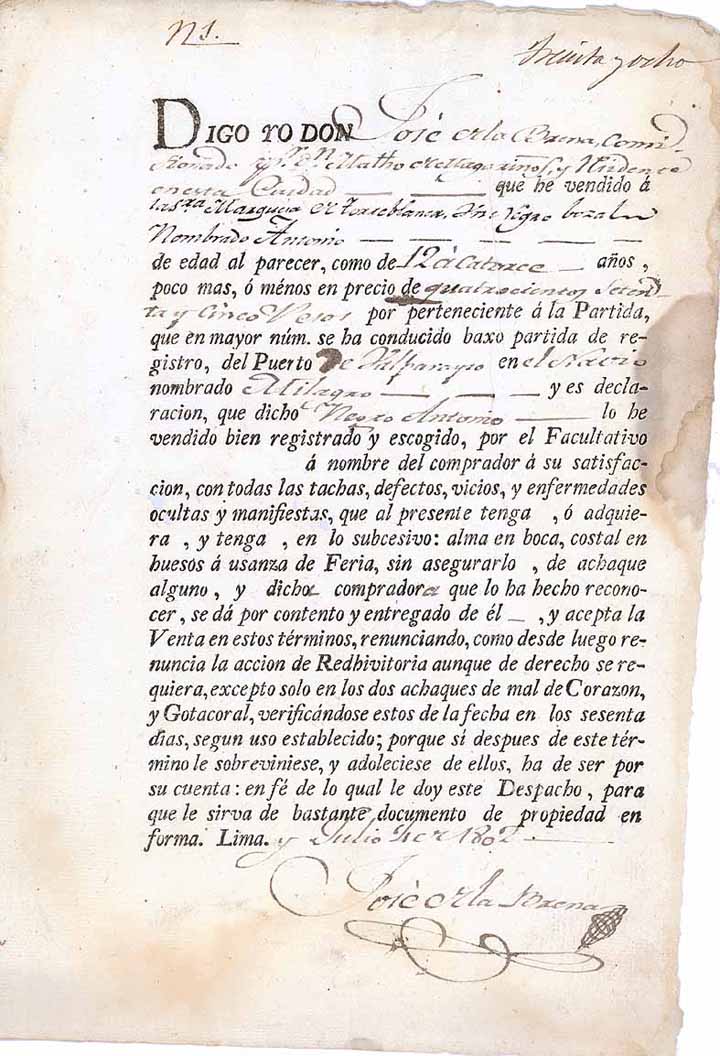 N 1.
Treinta y ocho
DIGO YO DON José de la Baena, Comi-
sionado pr. Dn. Matho y Recidente
en esta Ciudad — — que he vendido á
la sra. Marquesa de Torreblanca, un negro bozal
Nombrado Antonio — — — — —
de edad al parecer, como de 12 á Catorce — años,
poco mas, ó ménos en precio de quatrocientos seten-
ta y Cinco Pesos por perteneciente á la Partida,
que en mayor núm. se ha conducido baxo partida de re-
gistro, del Puerto de Valparayso en el Navio
nombrado Milagro — — — y es decla-
racion, que dicho Negro Antonio — lo he
vendido bien registrado y escogido, por el Facultativo
á nombre del comprador á su satisfac-
cion, con todas las tachas, defectos, vicios, y enfermedades
ocultas y manifiestas, que al presente tenga , ó adquie-
ra , y tenga , en lo subcesivo: alma en boca, costal en
huesos á usanza de Feria, sin asegurarlo , de achaque
alguno, y dicha compradora que lo ha hecho recono-
cer, se dá por contento y entregado de él — , y acepta la
Venta en estos términos, renunciando, como desde luego re-
nuncia la accion de Redhivitoria aunque de derecho se re-
quiera, excepto solo en los dos achaques de mal de Corazon,
y Gotacoral, verificándose estos de la fecha en los sesenta
dias, segun uso establecido; porque si despues de este tér-
mino le sobreviniese, y adoleciese de ellos, ha de ser por
su cuenta: en fé de lo qual le doy este Despacho, para
que le sirva de bastante documento de propiedad en
forma. Lima. y Julio de 1802 —
José de la Baena